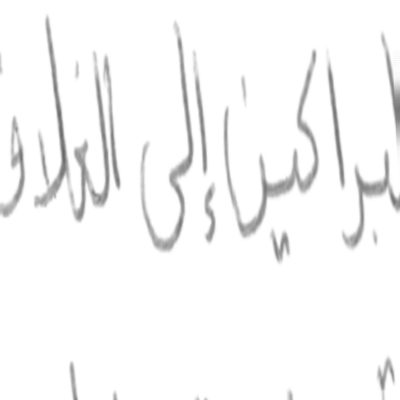 البراكين إلى الغلاف